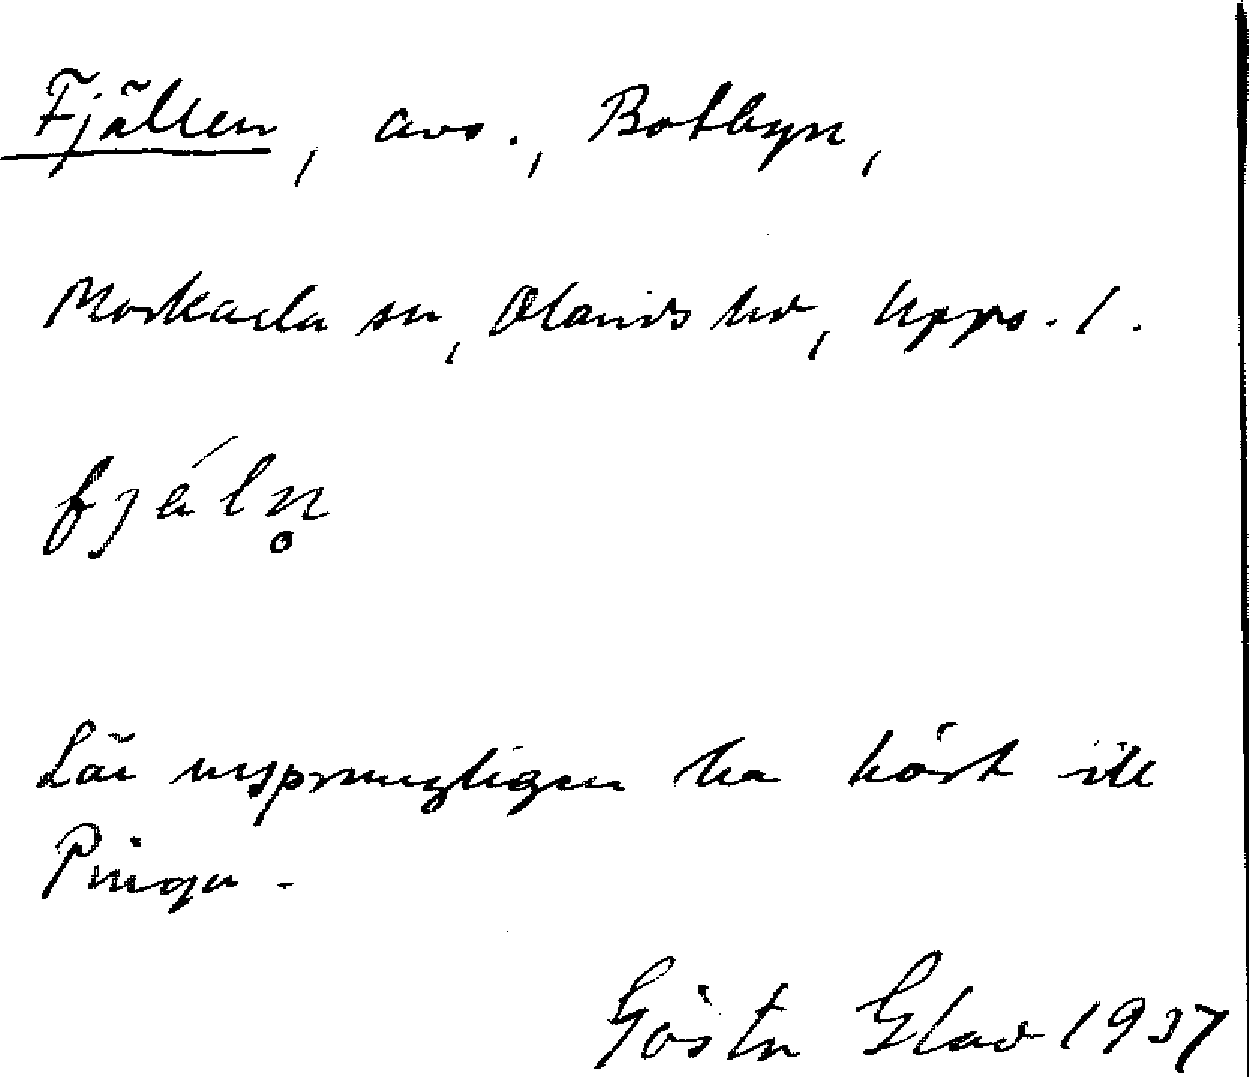 Fjällen, avs., Botbyn,
Morkarla sn, Olands hd, Upps. l.
fjä́ln̥
Lär ursprungligen ha hört till
Pringa.
Gösta Glad 1937